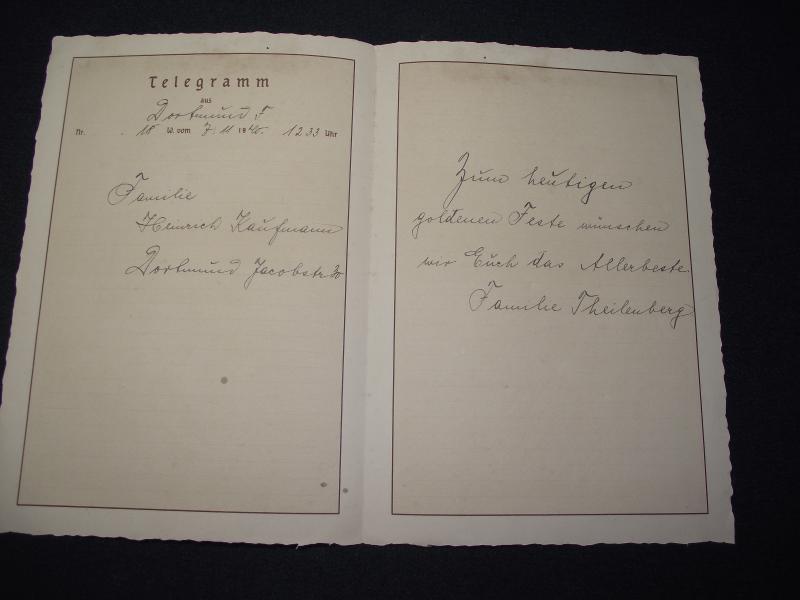 Telegramm
aus
Dortmund F
Nr. 18 W. vom 7. 11 1940. 1233 Uhr
Familie
Heinrich Kaufmann
Dortmund Jacobstr 30
Zum heutigen
goldenen Feste wünschen
wir Euch das Allerbeste.
Familie Theilenberg